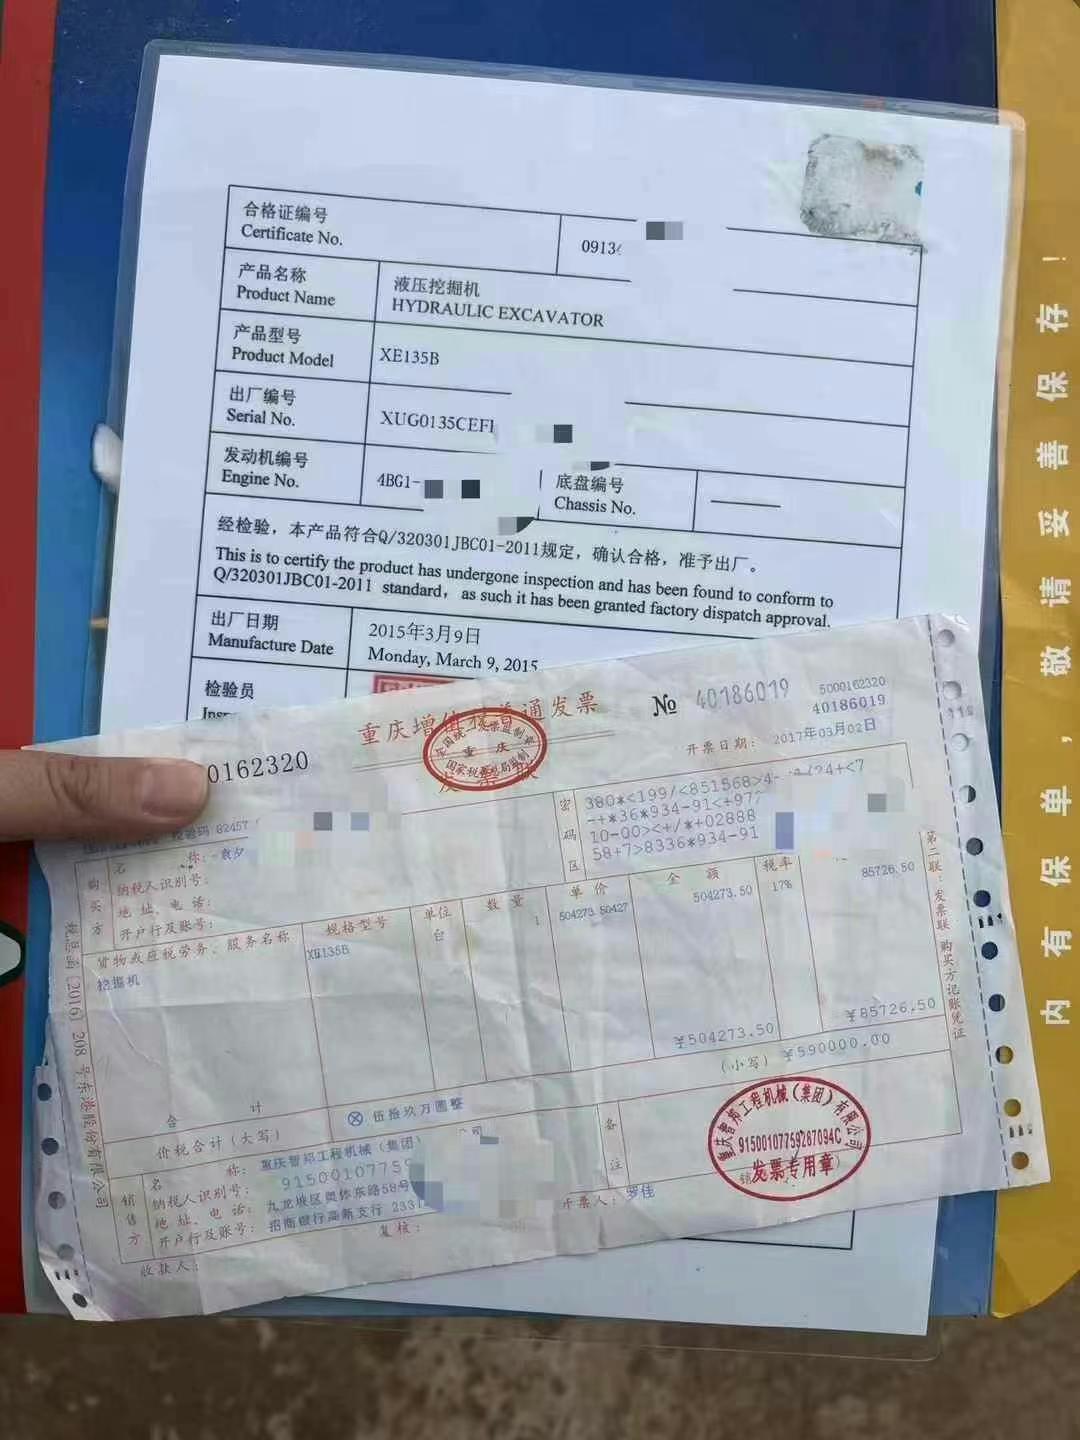 合格证编号
Certificate No.
0913
产品名称
Product Name
液压挖掘机
HYDRAULIC EXCAVATOR
产品型号
Product Model
XE135B
出厂编号
Serial No.
XUG0135CEF
发动机编号
Engine No.
4BG1-
底盘编号
Chassis No.
经检验，本产品符合Q/320301JBC01-2011规定，确认合格，准予出厂。
This is to certify the product has undergone inspection and has been found to conform to
Q/320301JBC01-2011 standard, as such it has been granted factory dispatch approval.
出厂日期
Manufacture Date
2015年3月9日
Monday, March 9, 2015
检验员
内有保单，敬请妥善保存！
0162320
重庆增值税普通发票
发票联
全国统一发票监制章
重庆
国家税务总局监制
№ 40186019
5000162320
40186019
开票日期： 2017年03月02日
校验码 82457
购买方
名 称：
袁夕
纳税人识别号：
地 址、电 话：
开户行及账号：
密码区
380*<199/<851568>4-
-+*36*934-91<+97
10-00><+/*+02888
58+7>8336*934-91
货物或应税劳务、服务名称
规格型号
单位
数 量
单 价
金 额
税率
挖掘机
XE135B
台
1
504273.50427
504273.50
17%
85726.50
合 计
¥504273.50
¥85726.50
价税合计（大写）
ⓧ 伍拾玖万圆整
（小写） ¥590000.00
销售方
名 称：
重庆智邦工程机械（集团）
公司
纳税人识别号：
91500107759
地 址、电 话：
九龙坡区奥体东路58号
开户行及账号：
招商银行高新支行 2331
备注
收款人：
复核：
开票人：罗佳
重庆智邦工程机械（集团）有限公司
91500107759287094C
发票专用章
第二联：发票联 购买方记账凭证
税总函〔2016〕208号东港股份有限公司